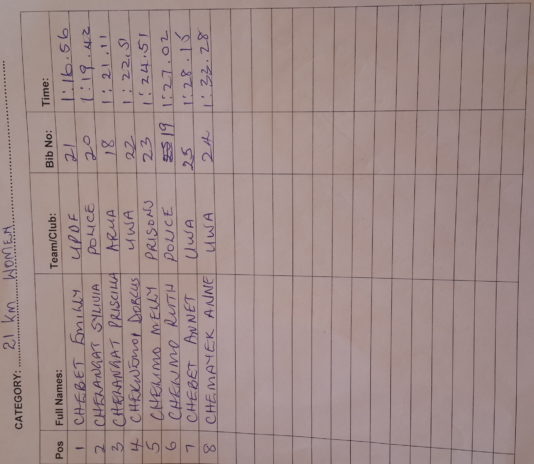 CATEGORY: 21 km WOMEN
Pos Full Names: Team/Club: Bib No: Time:
1 CHEBET EMILLY UPDF 21 1:16.56
2 CHELANGAT SYLIVIA POLICE 20 1:19.42
3 CHELANGAT PRISCILLA ARUA 18 1:21.11
4 CHEKWEMOI DORCUS UWA 22 1:22.51
5 CHEKIMO MELLY PRISONS 23 1:24.51
6 CHEKIMO RUTH POLICE 19 1:27.02
7 CHEBET ANNET UWA 25 1:28.15
8 CHEMAYEK ANNE UWA 24 1:33.28